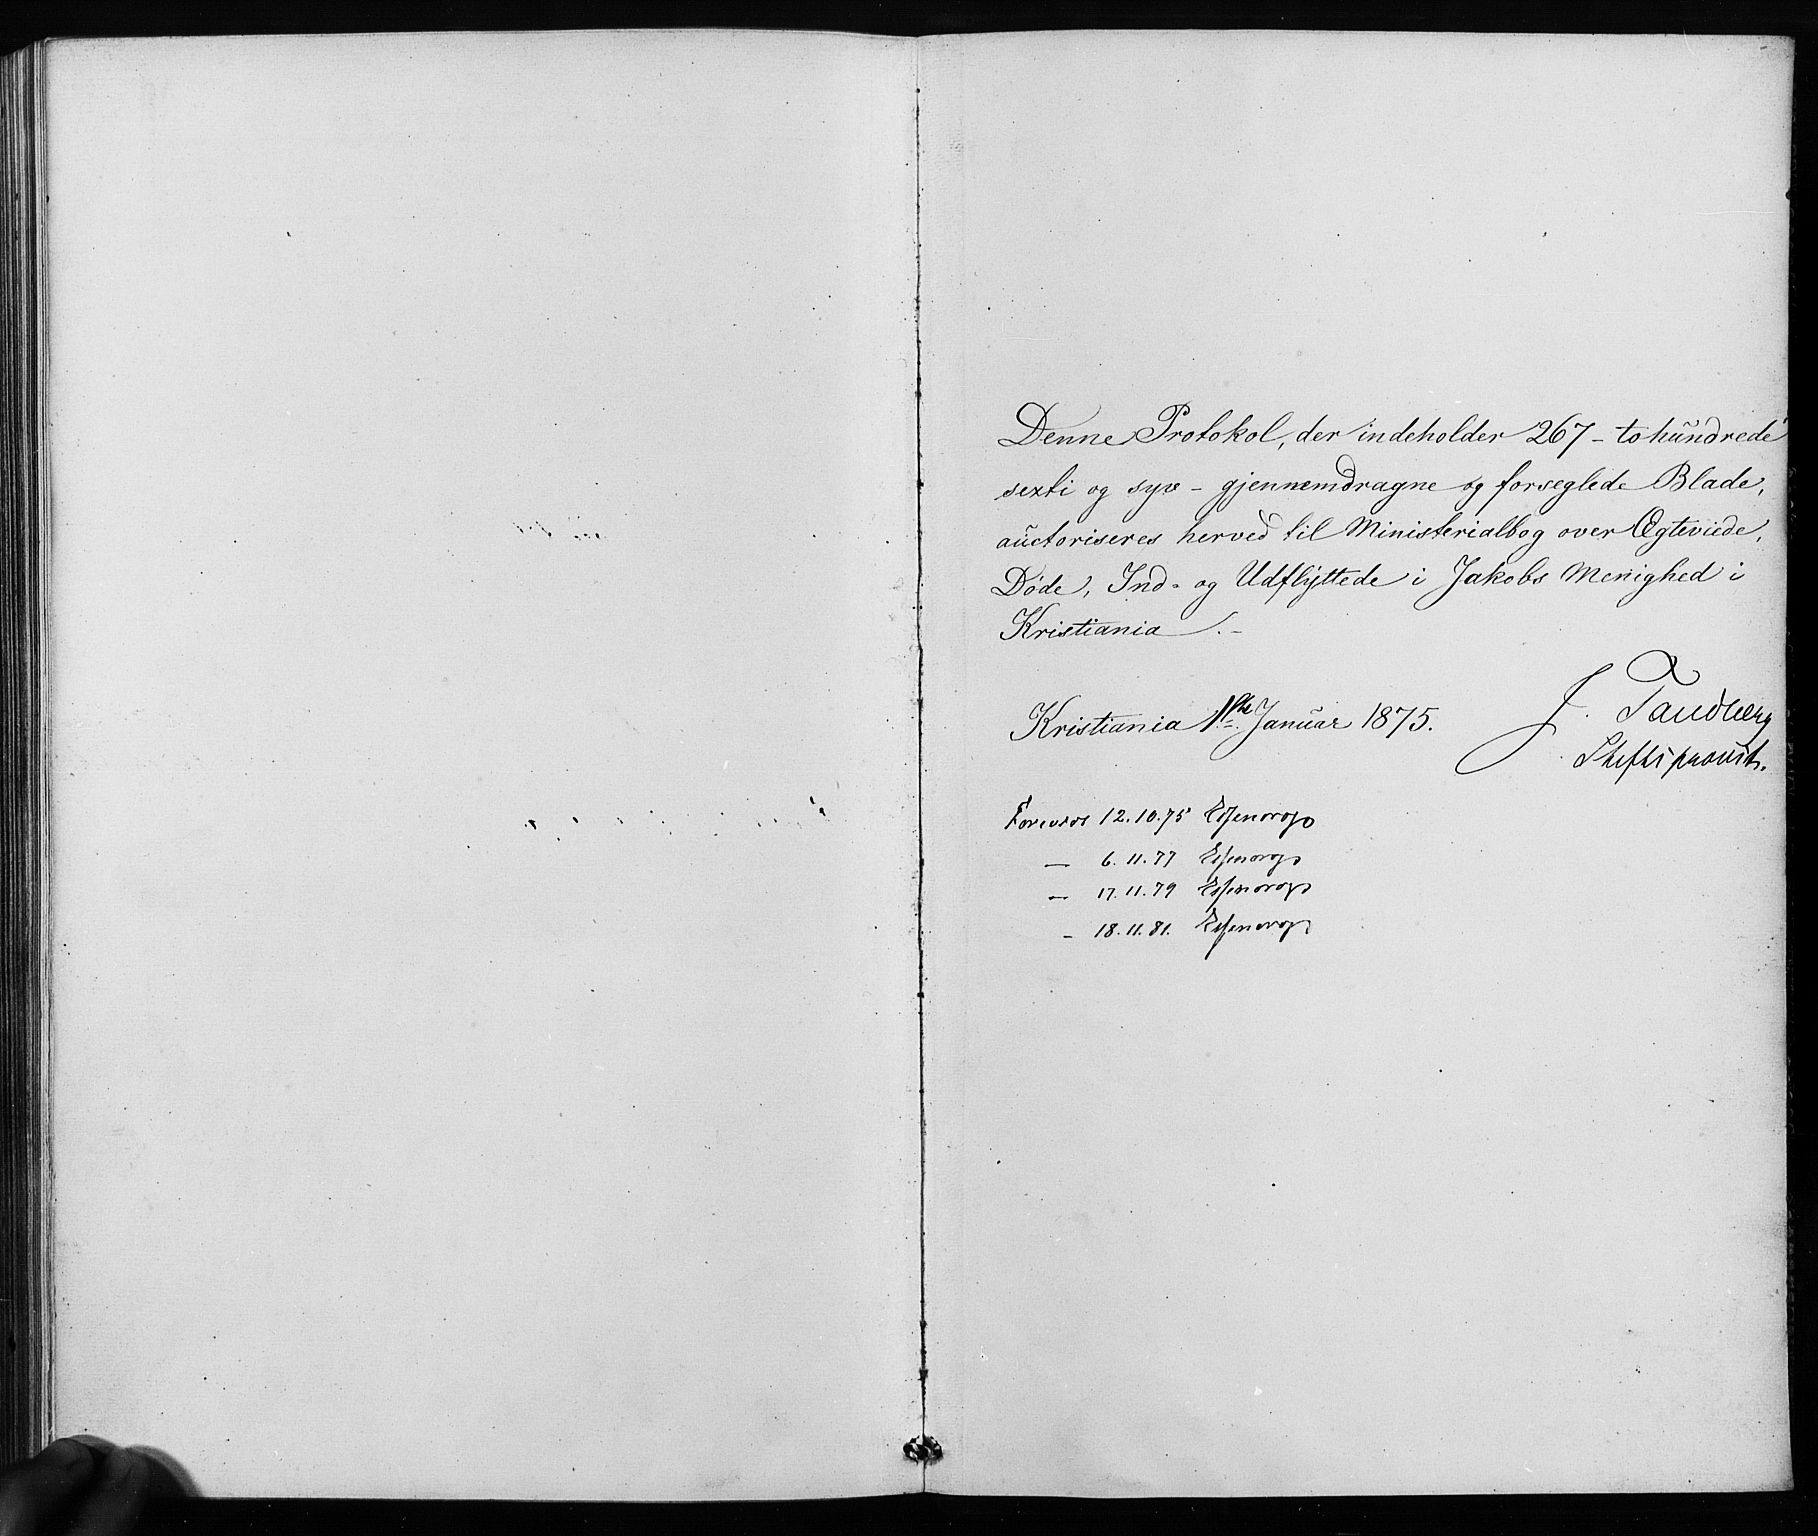 Denne Protokol, der indeholder 267 - tohundrede
sexti og syv - gjennemdragne og forseglede Blade,
auctoriseres herved til Ministerialbog over Ægteviede,
Døde, Ind- og Udflyttede i Jakobs Menighed i
Kristiania . -
Kristiania 1ste Januar 1875.
J. Tandberg
Stiftsprovst.
Forevist 12.10.75 Essendrop
— 6.11.77 Essendrop
— 17.11.79 Essendrop
— 18.11.81. Essendrop